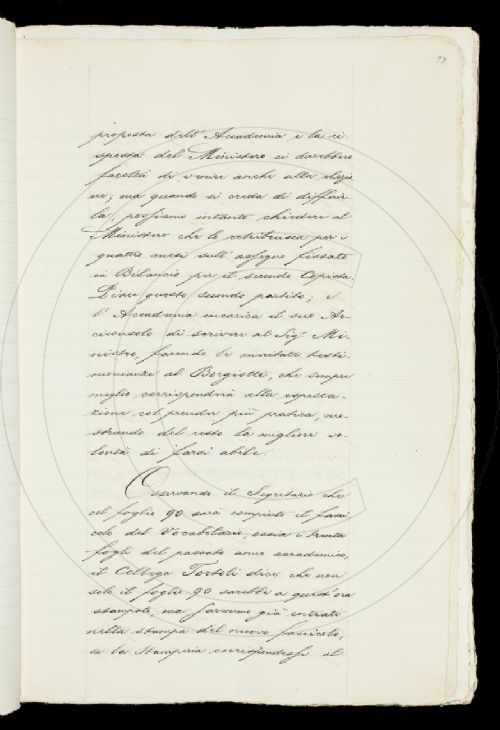 97
proposta dell' Accademia e la ri
sposta del Ministero ci darebbero
facoltà di venire anche alla elezio
ne; ma quando si creda di differir
la, possiamo intanto chiedere al
Ministero che lo retribuisca per i
quattro mesi sull' assegno fissato
in Bilancio per il secondo Copista.
Piace questo secondo partito; e
l' Accademia incarica il suo Ar
ciconsolo di scrivere al Sig. Mi-
nistro, facendo le meritate testi-
monianze al Borgiotti, che sempre
meglio corrisponderà alla aspetta-
zione col prender più pratica, mo-
strando del resto la migliore vo-
lontà di farsi abile.
Osservando il Segretario che
col foglio 90 sarà compiuto il fasci
colo del Vocabolario, ossia i trenta
fogli del passato anno accademico,
il Collega Tortoli dice che non
solo il foglio 90 sarebbe a quest'ora
stampato, ma saremmo già entrati
nella stampa del nuovo fascicolo,
se la Stamperia corrispondesse al